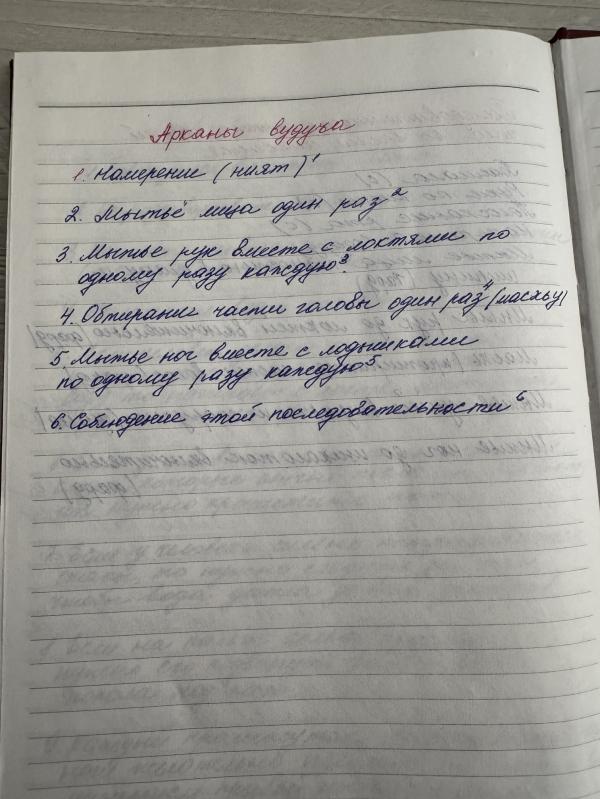 Арканы вудуъа
1. Намерение (ният)¹
2. Мытьё лица один раз²
3. Мытье рук вместе с локтями по
одному разу каждую³.
4. Обтирание части головы один раз⁴ (масхьу)
5. Мытье ног вместе с лодыжками
по одному разу каждую⁵
6. Соблюдение этой последовательности⁶